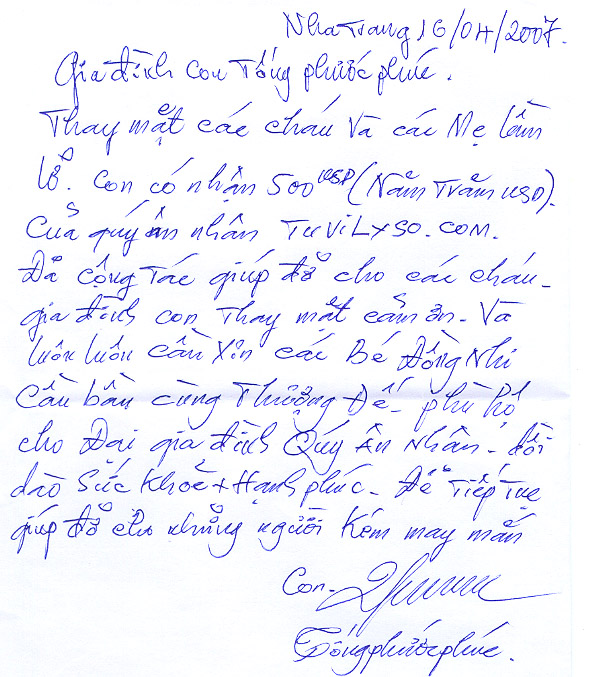 Nha Trang 16/04/2007.
Gia đình con Tống phước phúc.
Thay mặt các cháu và các Mẹ lầm
lỡ. Con có nhận 500 USD (Năm Trăm USD).
Của quý ân nhân TuViLySo.COM.
Đã cộng tác giúp đỡ cho các cháu -
gia đình con Thay mặt cảm ơn - Và
luôn luôn cầu xin các Bé Đồng Nhi
Cầu bàu cùng Thượng Đế - phù hộ
cho Đại gia đình Quý Ân Nhân - dồi
dào Sức Khoẻ + Hạnh phúc - Để Tiếp Tục
giúp đỡ cho những người Kém may mắn
Con -
Tống phước phúc.